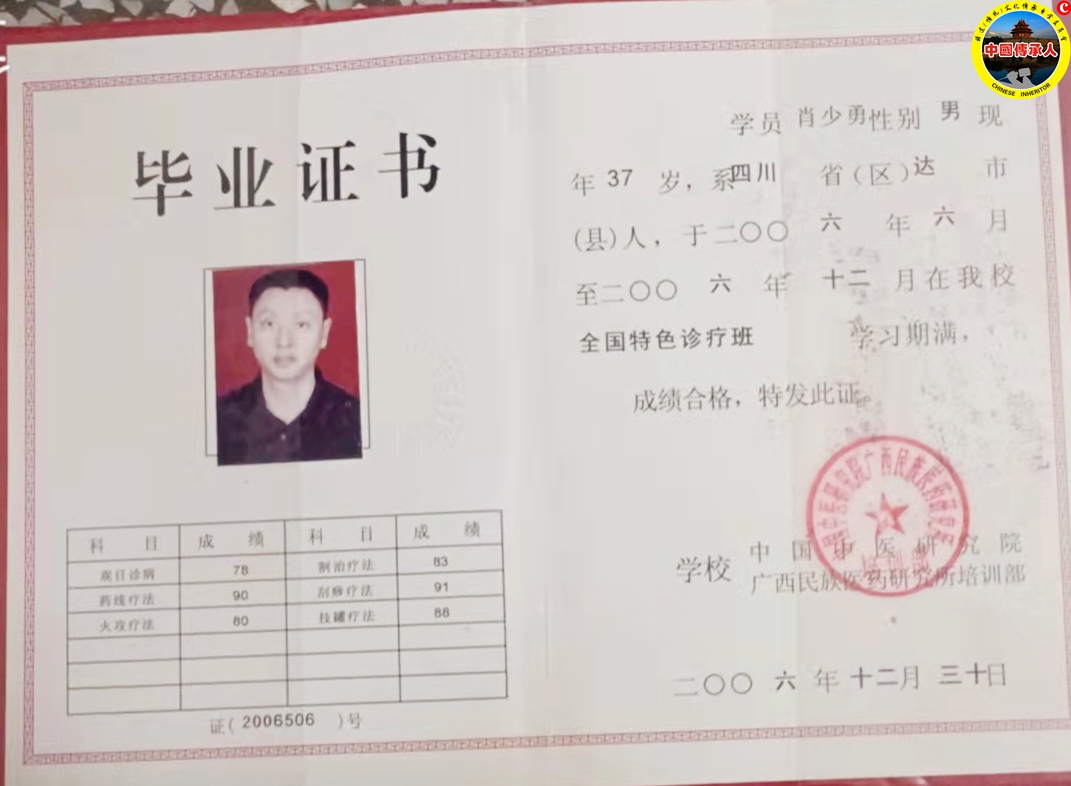 中國傳承人
CHINESE INHERITOR
毕业证书
学员 肖少勇 性别 男 现
年 37 岁，系 四川 省（区）达 市
(县)人，于二〇〇六年六月
至二〇〇六年十二月在我校
全国特色诊疗班 学习期满，
成绩合格，特发此证。
科目 成绩 科目 成绩
观目诊病 78 割治疗法 83
药线疗法 90 刮痧疗法 91
火攻疗法 80 技罐疗法 88
证（2006506）号
学校 中国中医研究院
广西民族医药研究所培训部
二〇〇六年十二月三十日